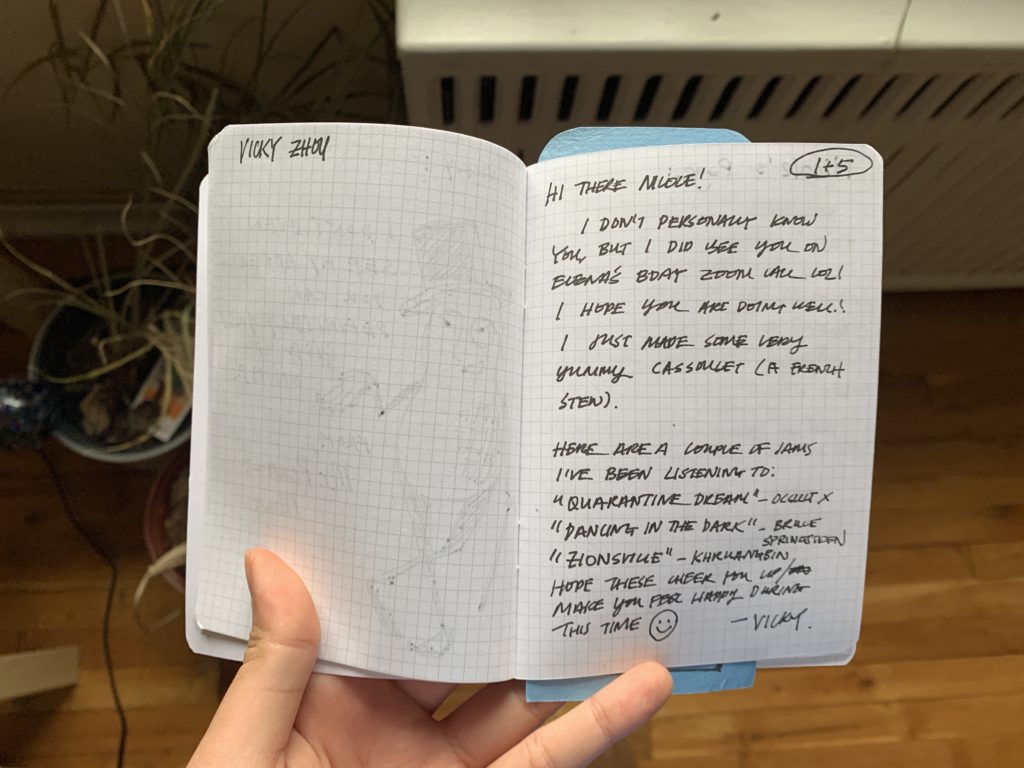 VICKY ZHOU
1+5
HI THERE NICOLE!
I DON'T PERSONALLY KNOW
YOU, BUT I DID SEE YOU ON
ELENA'S BDAY ZOOM CALL LOL!
I HOPE YOU ARE DOING WELL!
I JUST MADE SOME VERY
YUMMY CASSOULET (A FRENCH
STEW).
HERE ARE A COUPLE OF JAMS
I'VE BEEN LISTENING TO:
"QUARANTINE DREAM" - OCCULT X
"DANCING IN THE DARK" - BRUCE
SPRINGSTEEN
"ZIONSVILLE" - KHRUANGBIN
HOPE THESE CHEER YOU UP/
MAKE YOU FEEL HAPPY DURING
THIS TIME
- VICKY.